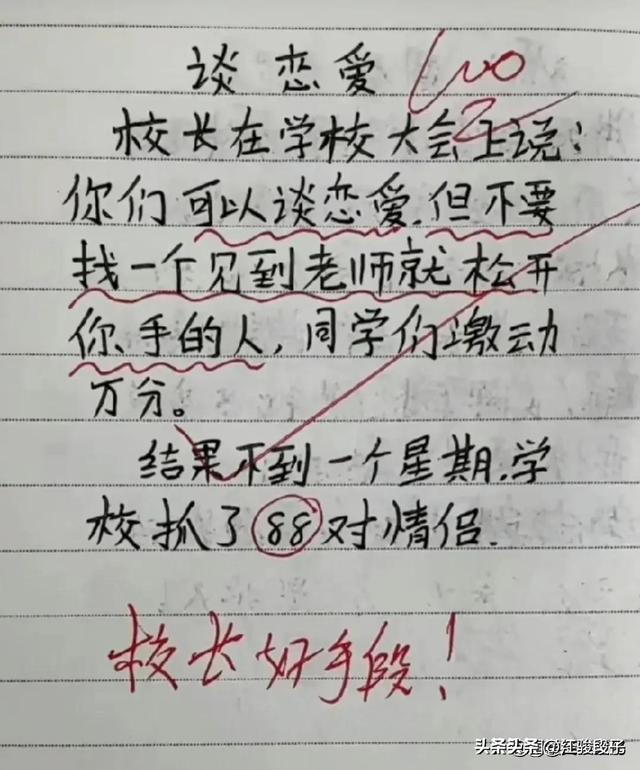 谈恋爱
100
校长在学校大会上说:
你们可以谈恋爱.但不要
找一个见到老师就松开
你手的人,同学们激动
万分。
结果不到一个星期.学
校抓了88对情侣.
校长好手段!
头条头条
段子